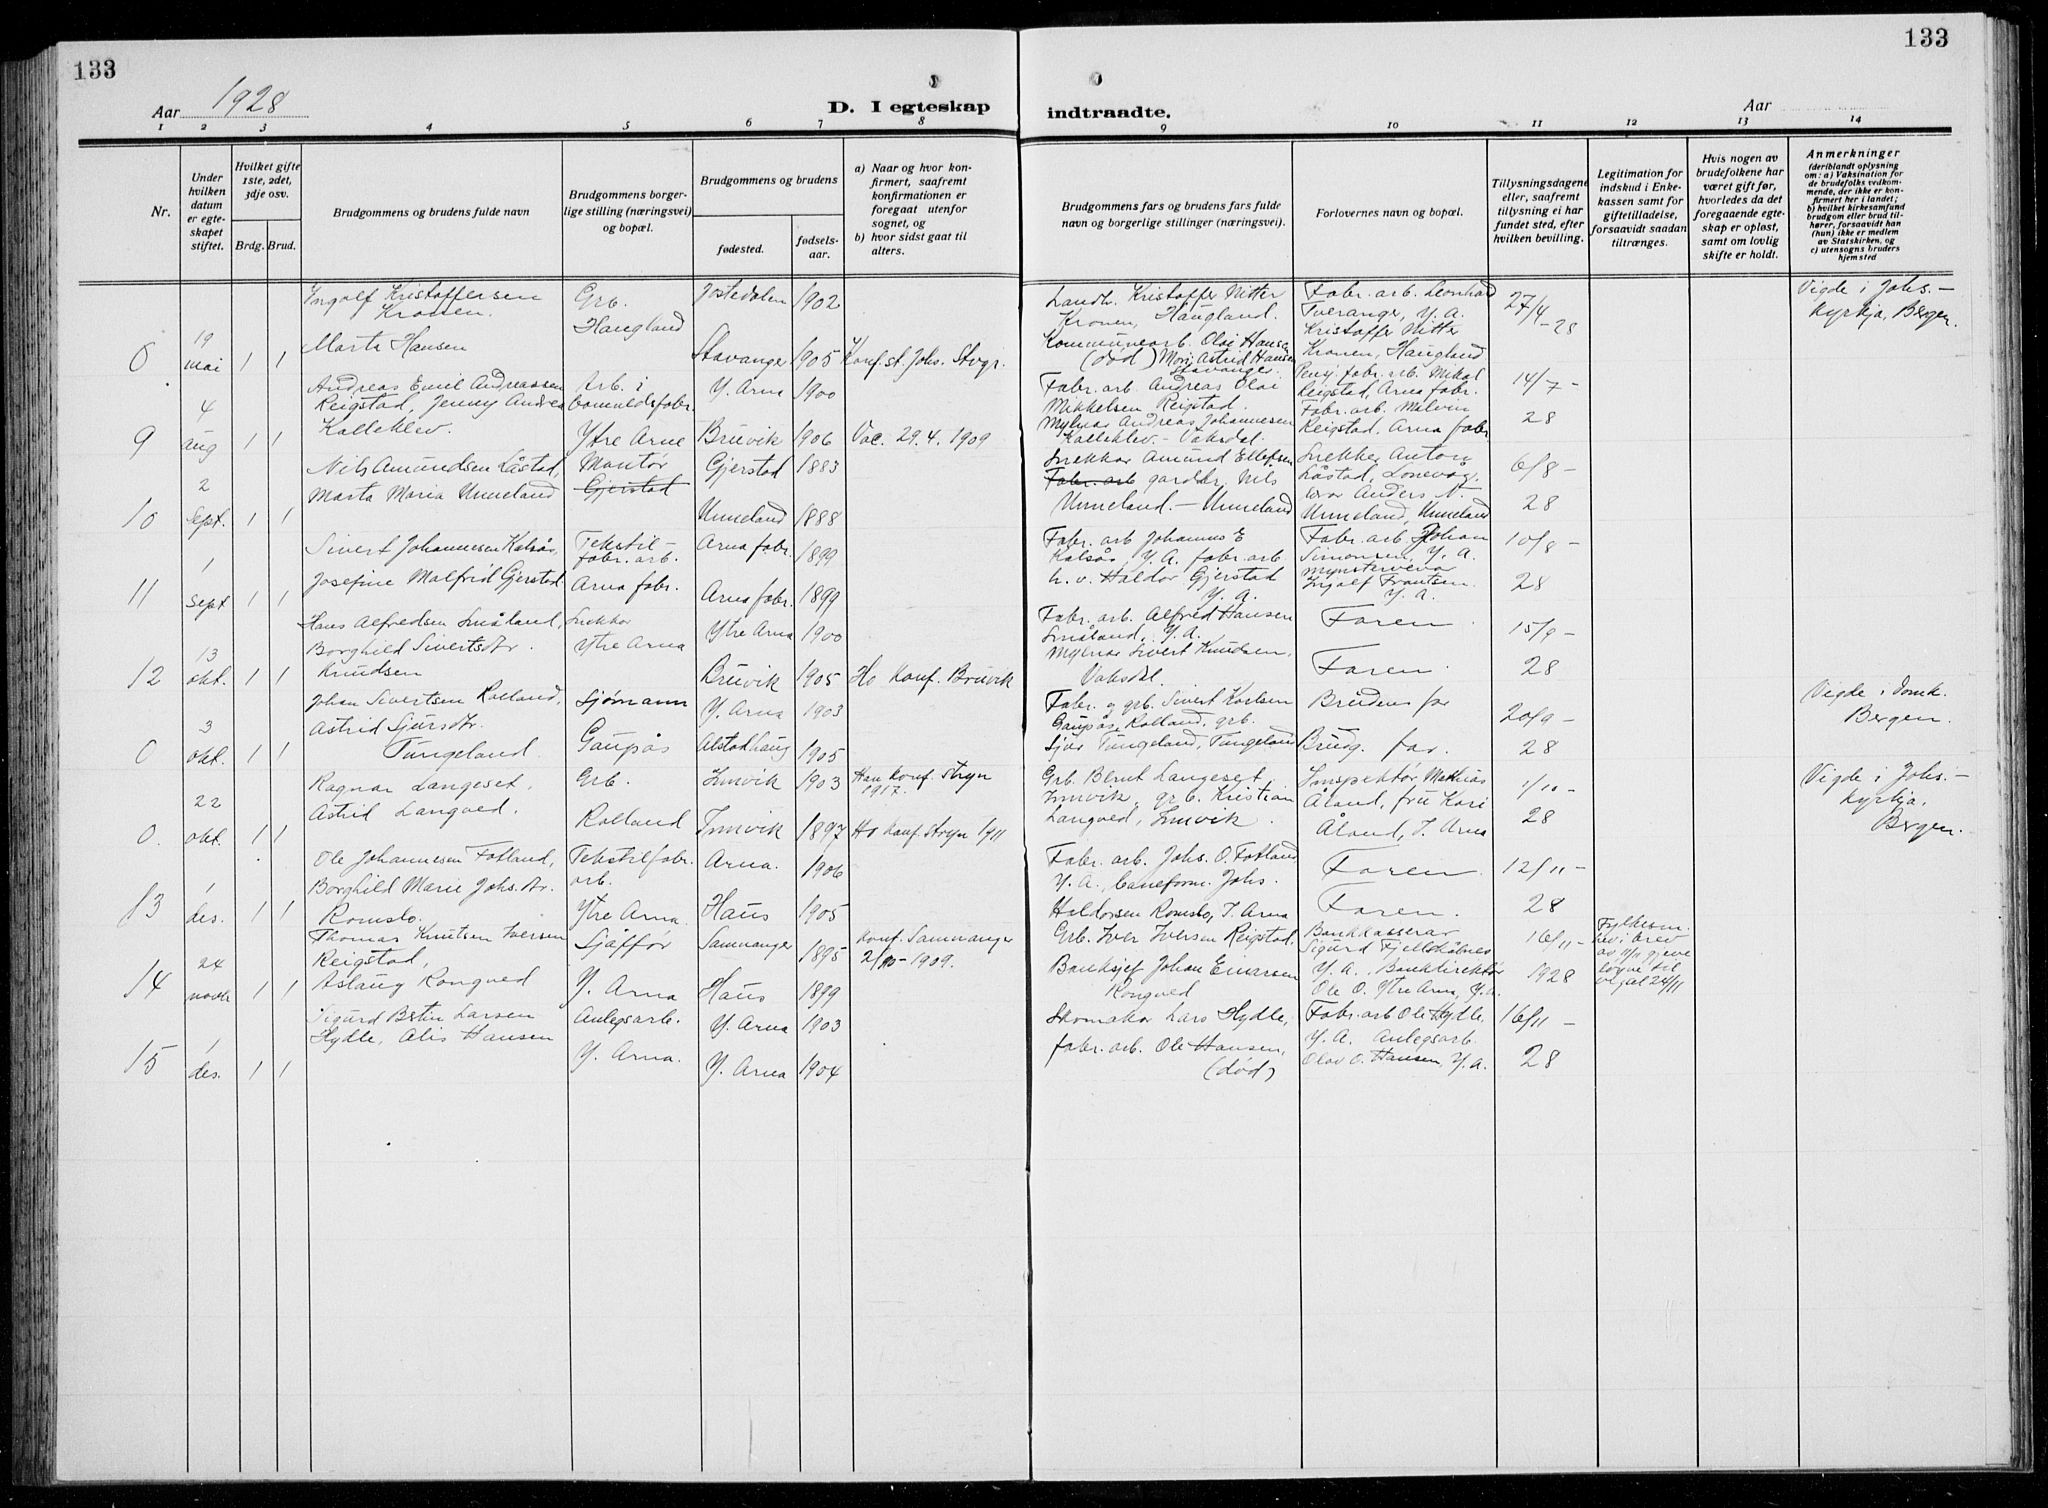 133
133
Aar 1928
D. I egteskap
indtraadte.
Aar
1 2 3 4 5 6 7 8
9 10 11 12 13 14
Nr.
Under hvilken datum er egteskapet stiftet.
Hvilket gifte 1ste, 2det, 3dje osv.
Brdg. Brud.
Brudgommens og brudens fulde navn
Brudgommens borgerlige stilling (næringsvei) og bopæl.
Brudgommens og brudens
fødested.
fødselsaar.
a) Naar og hvor konfirmert, saafremt konfirmationen er foregaat utenfor sognet, og
b) hvor sidst gaat til alters.
Brudgommens fars og brudens fars fulde navn og borgerlige stillinger (næringsvei).
Forlovernes navn og bopæl.
Tillysningsdagene eller, saafremt tillysning ei har fundet sted, efter hvilken bevilling.
Legitimation for indskud i Enkekassen samt for giftetilladelse, forsaavidt saadan tiltrænges.
Hvis nogen av brudefolkene har været gift før, hvorledes da det foregaaende egteskap er opløst, samt om lovlig skifte er holdt.
Anmerkninger
(deriblandt oplysning om: a) Vaksination for de brudefolks vedkommende, der ikke er konfirmert her i landet; b) hvilket kirkesamfund brudgom eller brud tilhører, forsaavidt han (hun) ikke er medlem av Statskirken, og c) utensogns bruders hjemsted
0 19 mai 1 1
Ingolf Kristoffersen
Kronen.
Marta Hansen
Grb.
Haugland
Jostedalen 1902
Stavanger 1905
Konf. st. Johs. Stvgr.
Landh. Kristoffer Nitter
Kronen, Haugland.
Kommunearb. Olai Hansen
(død) Mor: Astrid Hansen
Stavanger.
Fabr. arb. Leonhard
Tveranger, Y. A.
Kristoffer Nitter
Kronen, Haugland
27/4 - 28
Vigde i Johs.-
kyrkja, Bergen.
9 4 aug 1 1
Andreas Emil Andreassen
Reigstad, Jenny Andrea
Kalleklev.
Arb. i
Ytre Arne
Y. Arna 1900
Bruvik 1906
Vac. 29.4. 1909
Fabr. arb. Andreas Olai
Mikkelsen Reigstad.
Mylnar Andreas Johannesen
Kalleklev - Vaksdal.
Pensj. fabr. arb. Mikal
Reigstad, Arna fabr.
Fabr. arb. Malvin
Reigstad, Arna fabr
14/7 - 28
10 2 sept. 1 1
Nils Amundsen Låstad,
Marta Maria Unneland
Montør
Gjerstad
Gjerstad 1883
Unneland 1888
Snekkar Amund Ellefsen
Fabr. arb gardbr. Nils
Unneland. - Unneland
Snekker Anton
Låstad, Lonevåg.
Anders N.
Unneland, Unneland
6/8 - 28
11 1 sept 1 1
Sivert Johannesen Kalsås,
Josefine Malfrid Gjerstad.
Tekstil-
fabr. arb.
Arna fabr.
Arna fabr. 1899
Arna fabr. 1899
Fabr. arb Johannes E
Kalsås, Y. A. fabr. arb.
h. v. Haldor Gjerstad
Y. A.
Fabr. arb. Johan
Simonsen, Y. A.
Mynstervevar
Ingolf Frantsen.
Y. A.
10/8 - 28
12 13 okt. 1 1
Hans Alfredsen Småland,
Borghild Sivertsdtr.
Knudsen
Snekkar
Ytre Arna
Ytre Arna 1900
Bruvik 1905
Ho konf. Bruvik
Fabr. arb. Alfred Hansen
Småland, Y. A.
Mylnar Sivert Knudsen,
Vaksdal.
Faren.
Faren.
15/9 - 28
0 3 okt. 1 1
Johan Sivertsen Rolland,
Astrid Sjursdtr.
Tungeland.
Sjømann
Gaupås
Y. Arna 1903
Alstadhaug 1905
Fabr. og grb. Sivert Karlsen
Gaupås, Rolland, grb.
Sjur Tungeland, Tungeland
Brudens far
Brudg. far.
20/9 - 28
Vigde i domk.
Bergen.
0. 22 okt. 1 1
Ragnar Langeset,
Astrid Langved.
Grb.
Rolland
Innvik 1903
Innvik 1897
Han konf. Stryn
1917.
Ho konf. Stryn 1911
Grb. Bernt Langeset,
Innvik, grb. Kristian
Langved, Innvik.
Inspektør Mathias
Åland, fru Kari
Åland, I. Arna
1/10 - 28
Vigde i Johs.-
kyrkja,
Bergen.
13 1 des. 1 1
Ole Johannesen Fotland,
Borghild Marie Johs. dtr.
Romslo.
Tekstilfabr.
arb.
Ytre Arna.
Arna. 1906
Haus 1905
Fabr. arb. Johs. O. Fotland
Y. A., Johs.
Haldorsen Romslo, I. Arna
Faren.
Faren.
12/11 - 28
14 24 novbr 1 1
Thomas Knutsen Iversen
Reigstad,
Aslaug Rongved
Sjåffør
Y. Arna
Samnanger 1895
Haus 1899
Konf. Samnanger
2/10 - 1909.
Grb. Iver Iversen Reigstad.
Banksjef Johan Einarsen
Rongved
Bankkasserar
Sigurd Fjellskålnes
Y. A. Bankdirektør
Ole O. Ytre Arna, Y. A.
16/11 - 1928
Fylkesm.
hev i brev
av 11/11 gjeve
løyve til
vigsel 24/11
15 1 des. 1 1
Sigurd Bertin Larsen
Hydle, Alis Hansen
Anlegsarb.
Y. Arna.
Y. Arna 1903
Y. Arna 1904
Skomakar Lars Hydle,
fabr. arb. Ole Hansen,
(død)
Fabr. arb Ole Hydle,
Y. A. Anlegsarb.
Olav O. Hansen, Y. A.
16/11 - 28